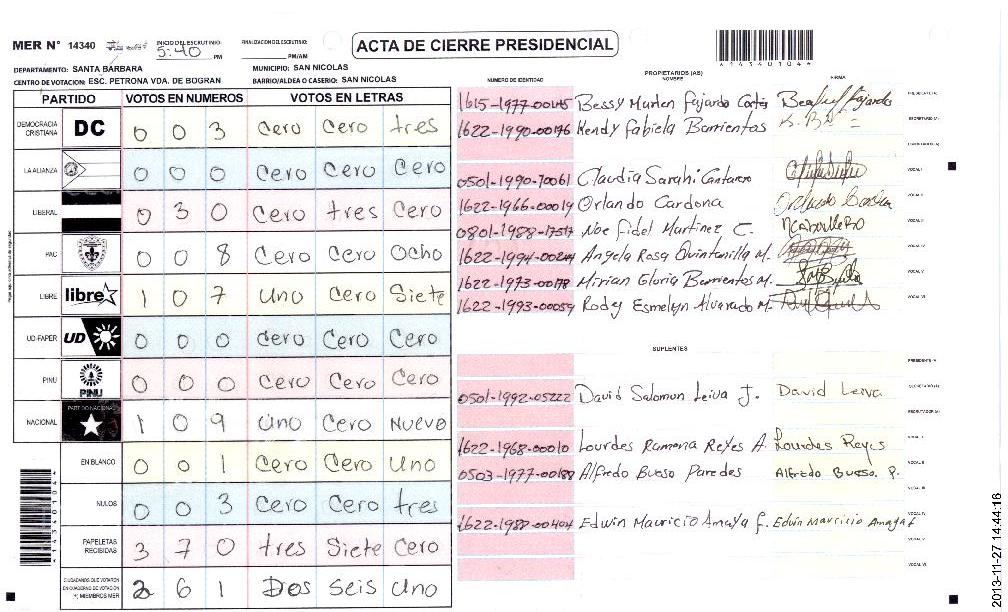 MER N° 14340 INICIO DEL ESCRUTINIO: 5:40 PM FINALIZACION DEL ESCRUTINIO: PM/AM
ACTA DE CIERRE PRESIDENCIAL
DEPARTAMENTO: SANTA BARBARA MUNICIPIO: SAN NICOLAS
CENTRO DE VOTACION: ESC. PETRONA VDA. DE BOGRAN BARRIO/ALDEA O CASERIO: SAN NICOLAS
PARTIDO VOTOS EN NUMEROS VOTOS EN LETRAS
DEMOCRACIA CRISTIANA DC 0 0 3 Cero Cero tres
LA ALIANZA 0 0 0 Cero Cero Cero
LIBERAL 0 3 0 Cero tres Cero
PAC 0 0 8 Cero Cero Ocho
LIBRE libre 1 0 7 Uno Cero Siete
UD-FAPER UD 0 0 0 Cero Cero Cero
PINU PINU 0 0 0 Cero Cero Cero
NACIONAL PARTIDO NACIONAL 1 0 9 Uno Cero Nueve
EN BLANCO 0 0 1 Cero Cero Uno
NULOS 0 0 3 Cero Cero tres
PAPELETAS RECIBIDAS 3 7 0 tres Siete Cero
CIUDADANOS QUE VOTARON EN CUADERNO DE VOTACION (+) MIEMBROS MER 2 6 1 Dos Seis Uno
4143401044
NUMERO DE IDENTIDAD PROPIETARIOS (AS) NOMBRE FIRMA
1615-1977-00145 Bessy Marlen Fajardo
1622-1990-00176 Kendy Fabiela Barrientos
0501-1990-70061 Claudia Sarahi Cantarero
1622-1966-00019 Orlando Cardona
0801-1988-17517 Noe Fidel Martinez C.
Angela Rosa Quintanilla M.
1622-1973-00178 Mirian Gloria Barrientos M.
1622-1993-00059 Rody Esmelyn Alvarado M.
SUPLENTES
0501-1992-05222 David Salomon Leiva J. David Leiva
1622-1968-00010 Lourdes Ramona Reyes A. Lourdes Reyes
0503-1977-00188 Alfredo Bueso Paredes Alfredo Bueso. P.
Edwin Mauricio Amaya F. Edwin Mauricio Amaya F
2013-11-27 14:44:16